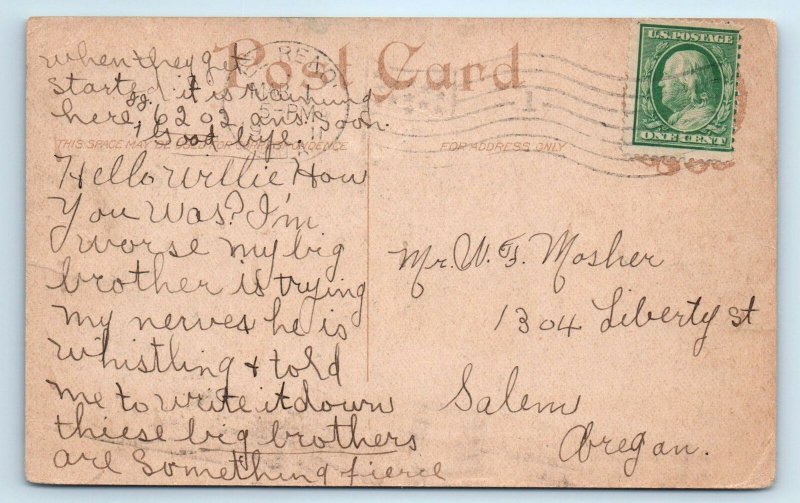 when they get
started it is raining
here, ans soon.
Good bye.
Post Card
THIS SPACE MAY BE USED FOR CORRESPONDENCE
FOR ADDRESS ONLY
RENO,
1
U.S. POSTAGE
ONE CENT
Hello Willie How
You Was? I'm
worse my big
brother is trying
my nerves he is
whistling & told
me to write it down
thiese big brothers
are something fierce
Mr. W. F. Mosher
1304 Liberty st
Salem
Oregan.